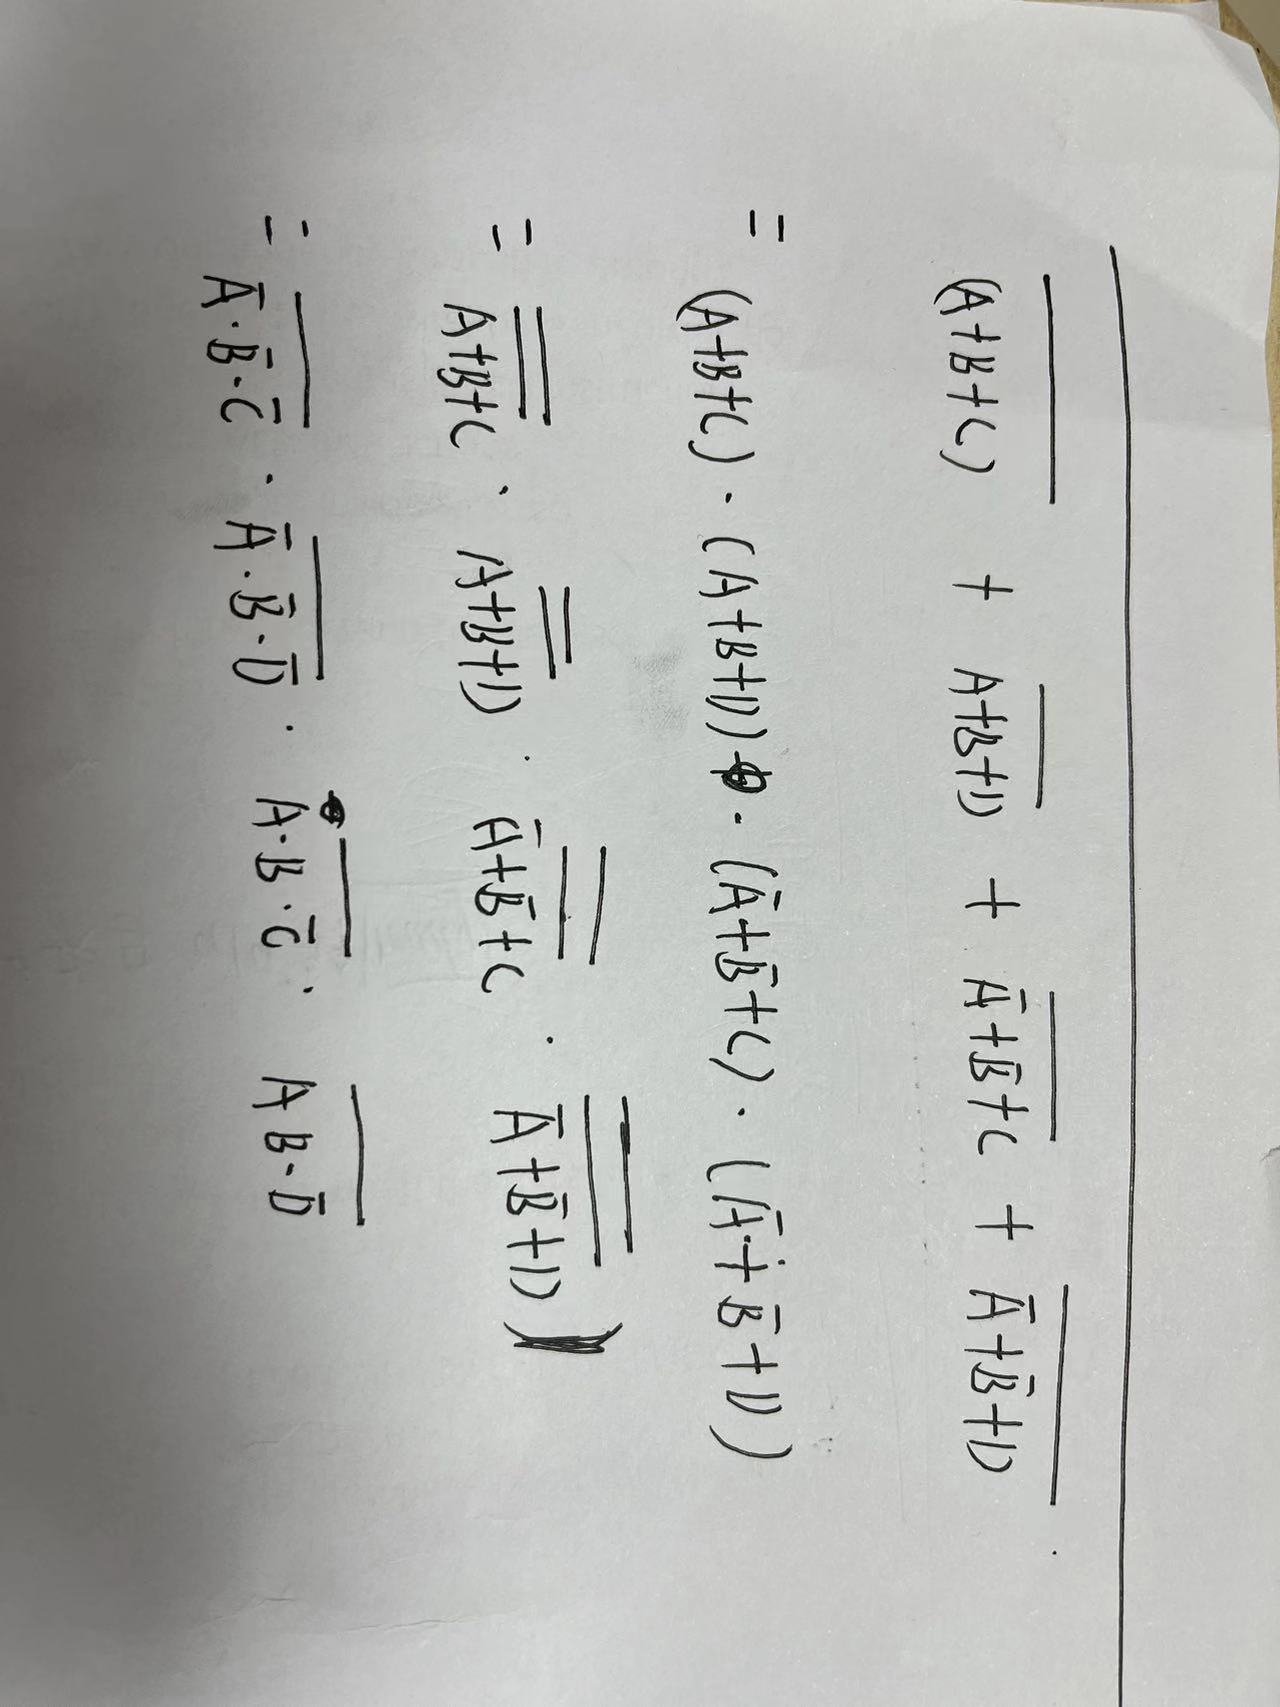 (A+B+C)̅ + A+B+D̅ + Ā+B̄+C̅ + Ā+B̄+D̅
= (A+B+C) · (A+B+D) · (Ā+B̄+C) · (Ā+B̄+D)
= A+B+C · A+B+D · Ā+B̄+C · Ā+B̄+D
= Ā·B̄·C̄ · Ā·B̄·D̄ · A·B·C̄ · A B·D̄